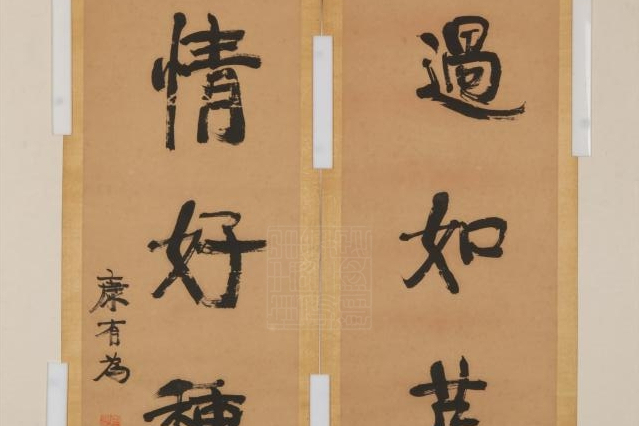 過如
情好種
康有為